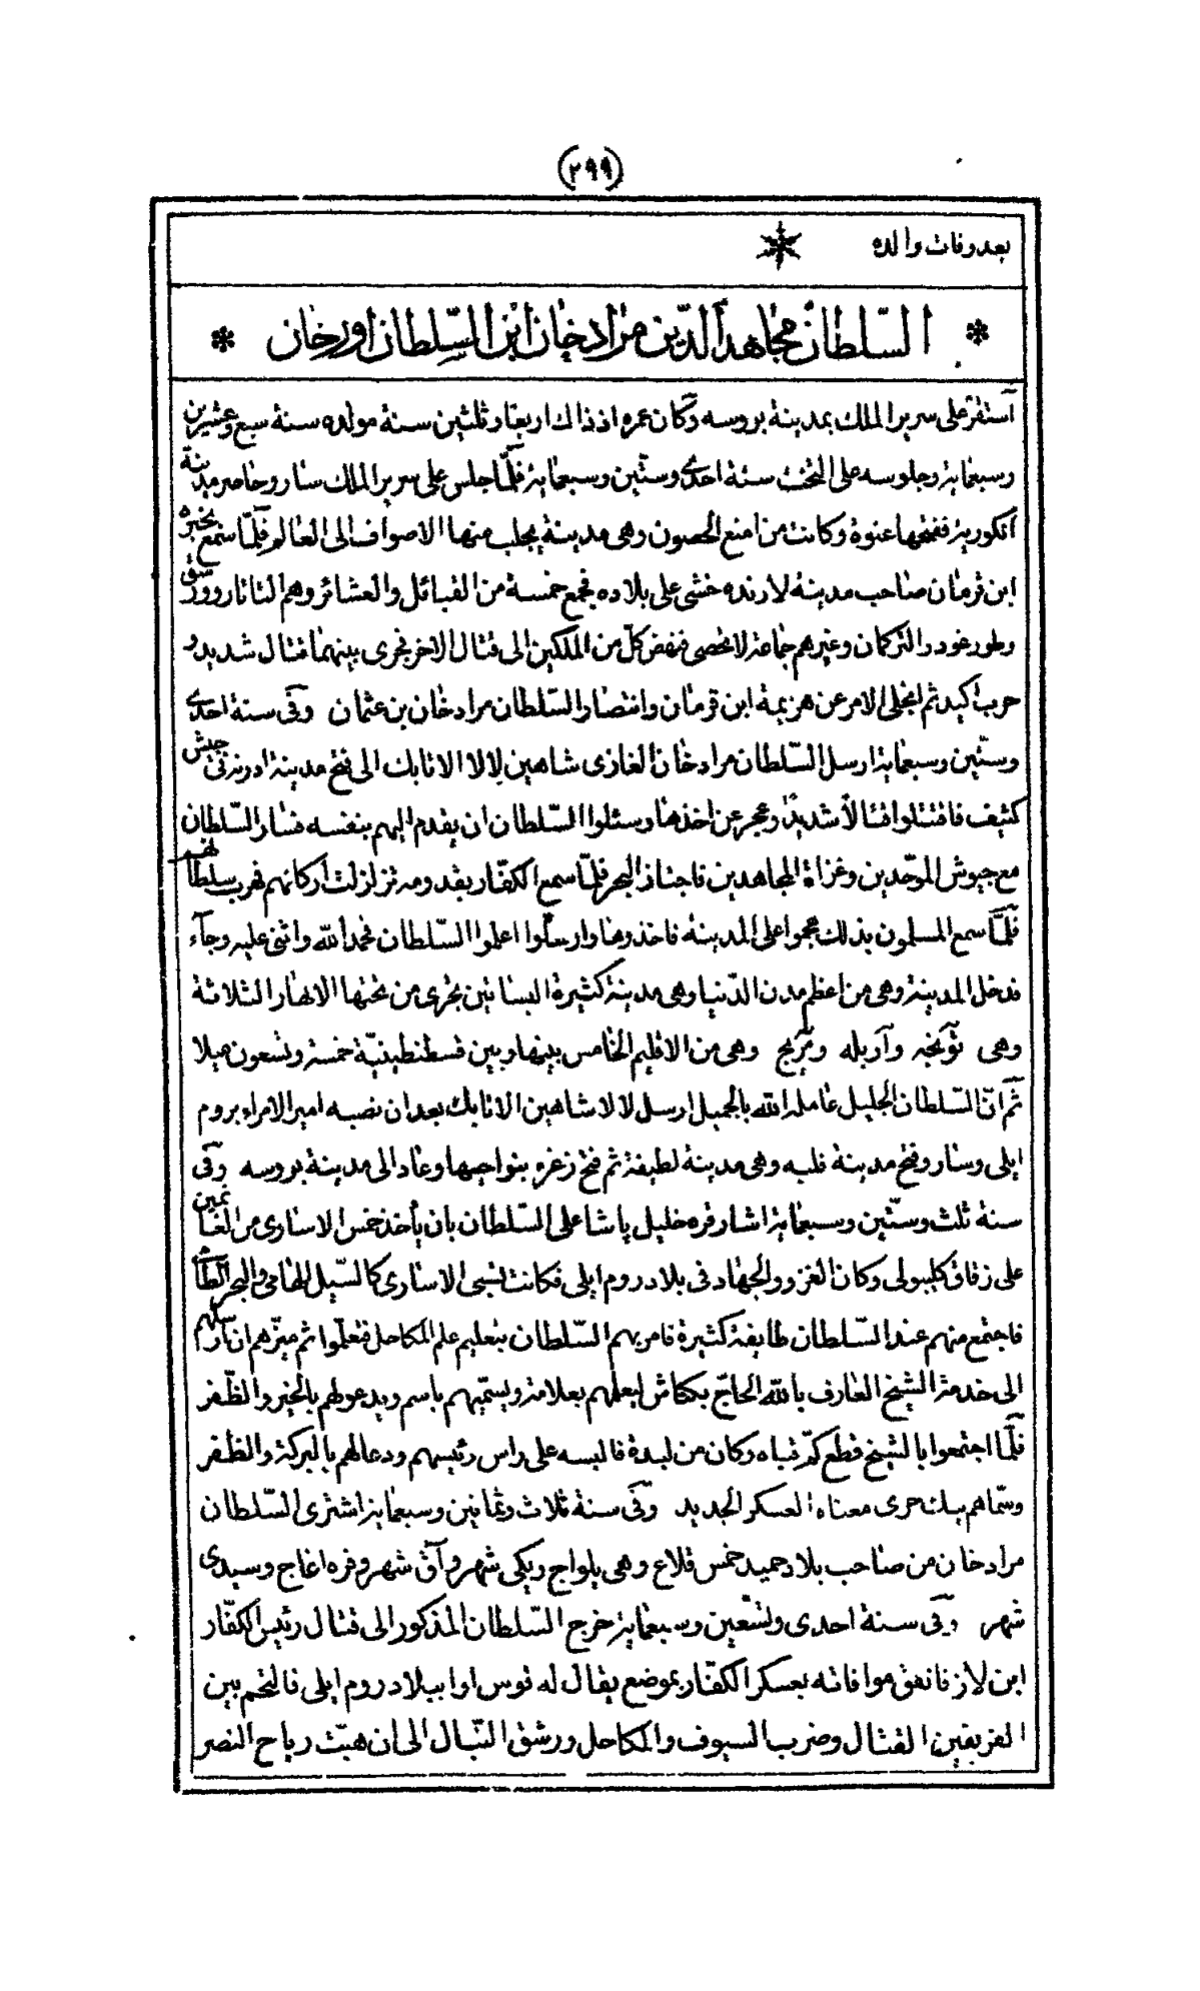 (٢٩٩)
بعد وفات والده
السّلطان مجاهد الدّين مراد خان ابن السّلطان اورخان
آستقرّ على سرير الملك بمدينة بروسه وكان عمره اذ ذاك اربعا وثلثين سنة مولده سنة سبع وعشرين
وسبعماية وجلوسه على التخت سنة احدى وستّين وسبعماية فلمّا جلس على سرير الملك سار وحاصر مدينة
انكورية ففتحها عنوة وكانت من امنع الحصون وهى مدينة يجلب منها الاصواف الى العالم فلمّا سمع بخبره
ابن قرمان صاحب مدينة لارنده خشى على بلاده فجمع خمسة من القبائل والعشائر وهم التاتار وورسق
وطورغود والتركمان وغيرهم جماعة لا تحصى فنهض كلّ من الملكين الى قتال الاخر فجرى بينهما قتال شديد و
حرب اكيد ثم انجلى الامر عن هزيمة ابن قرمان وانتصار السّلطان مراد خان بن عثمان وفى سنة احدى
وستّين وسبعماية ارسل السّلطان مراد خان الغازى شاهين لالا الاتابك الى فتح مدينة ادرنه فى جيش
كثيف فاقتتلوا قتالاً شديداً وعجز عن اخذها وسئلوا السّلطان ان يقدم اليهم بنفسه فسار السّلطان
مع جيوش الموحّدين وغزاة المجاهدين فاجتاز البحر فلمّا سمع الكفّار بقدومه تزلزلت اركانهم فهرب سلطانهم
فلمّا سمع المسلمون بذلك هجموا على المدينة فاخذوها وارسلوا اعلموا السّلطان فحمد الله واثنى عليه وجآء
فدخل المدينة وهى من اعظم مدن الدّنيا وهى مدينة كثيرة البساتين يجرى من تحتها الانهار الثلاثة
وهى تونجه وآربله ومريج وهى من الاقليم الخامس بينها وبين قسطنطينيّة خمسة وتسعون ميلا
ثمّ انّ السّلطان الجليل عامله الله بالجميل ارسل لالا شاهين الاتابك بعد ان نصبه امير الامراء بروم
ايلى وسار وفتح مدينة فلبه وهى مدينة لطيفة ثم فتح زغره بنواحيها وعاد الى مدينة بروسه وفى
سنة ثلث وستّين وسبعماية اشار قره خليل پاشا على السّلطان بان يأخذ خمس الاسارى من الغنائمين
على زقاق كليبولى وكان الغزو والجهاد فى بلاد روم ايلى فكانت تسبى الاسارى كالسّيل الهامى والبحر الطامى
فاجتمع منهم عند السّلطان طايفة كثيرة فامر بهم السّلطان بتعليم علم المكاحل فتعلّموا ثم ميّزهم ان ارسلهم
الى خدمة الشيخ العارف بالله الحاجّ بكتاش ليعلمهم بعلامة ويسمّيهم باسم ويدعو لهم بالخير والظّفر
فلمّا اجتمعوا بالشيخ قطع كمّ قباه وكان من لبدة فالبسه على راس رئيسهم ودعا لهم بالبركة والظفر
وسمّاهم يكيچرى معناه العسكر الجديد وفى سنة ثلاث وثمانين وسبعماية اشترى السّلطان
مراد خان من صاحب بلاد حميد خمس قلاع وهى يلواج ويكى شهر وآق شهر وقره اغاج وسيدى
شهر وفى سنة احدى وتسعين وسبعماية خرج السّلطان المذكور الى قتال رئيس الكفّار
ابن لاز فاتفق موافاته بعسكر الكفّار بموضع يقال له قوس اوا ببلاد روم ايلى فالتحم بين
الفريقين القتال وضرب السيوف والمكاحل ورشق النّبال الى ان هبّت رياح النصر